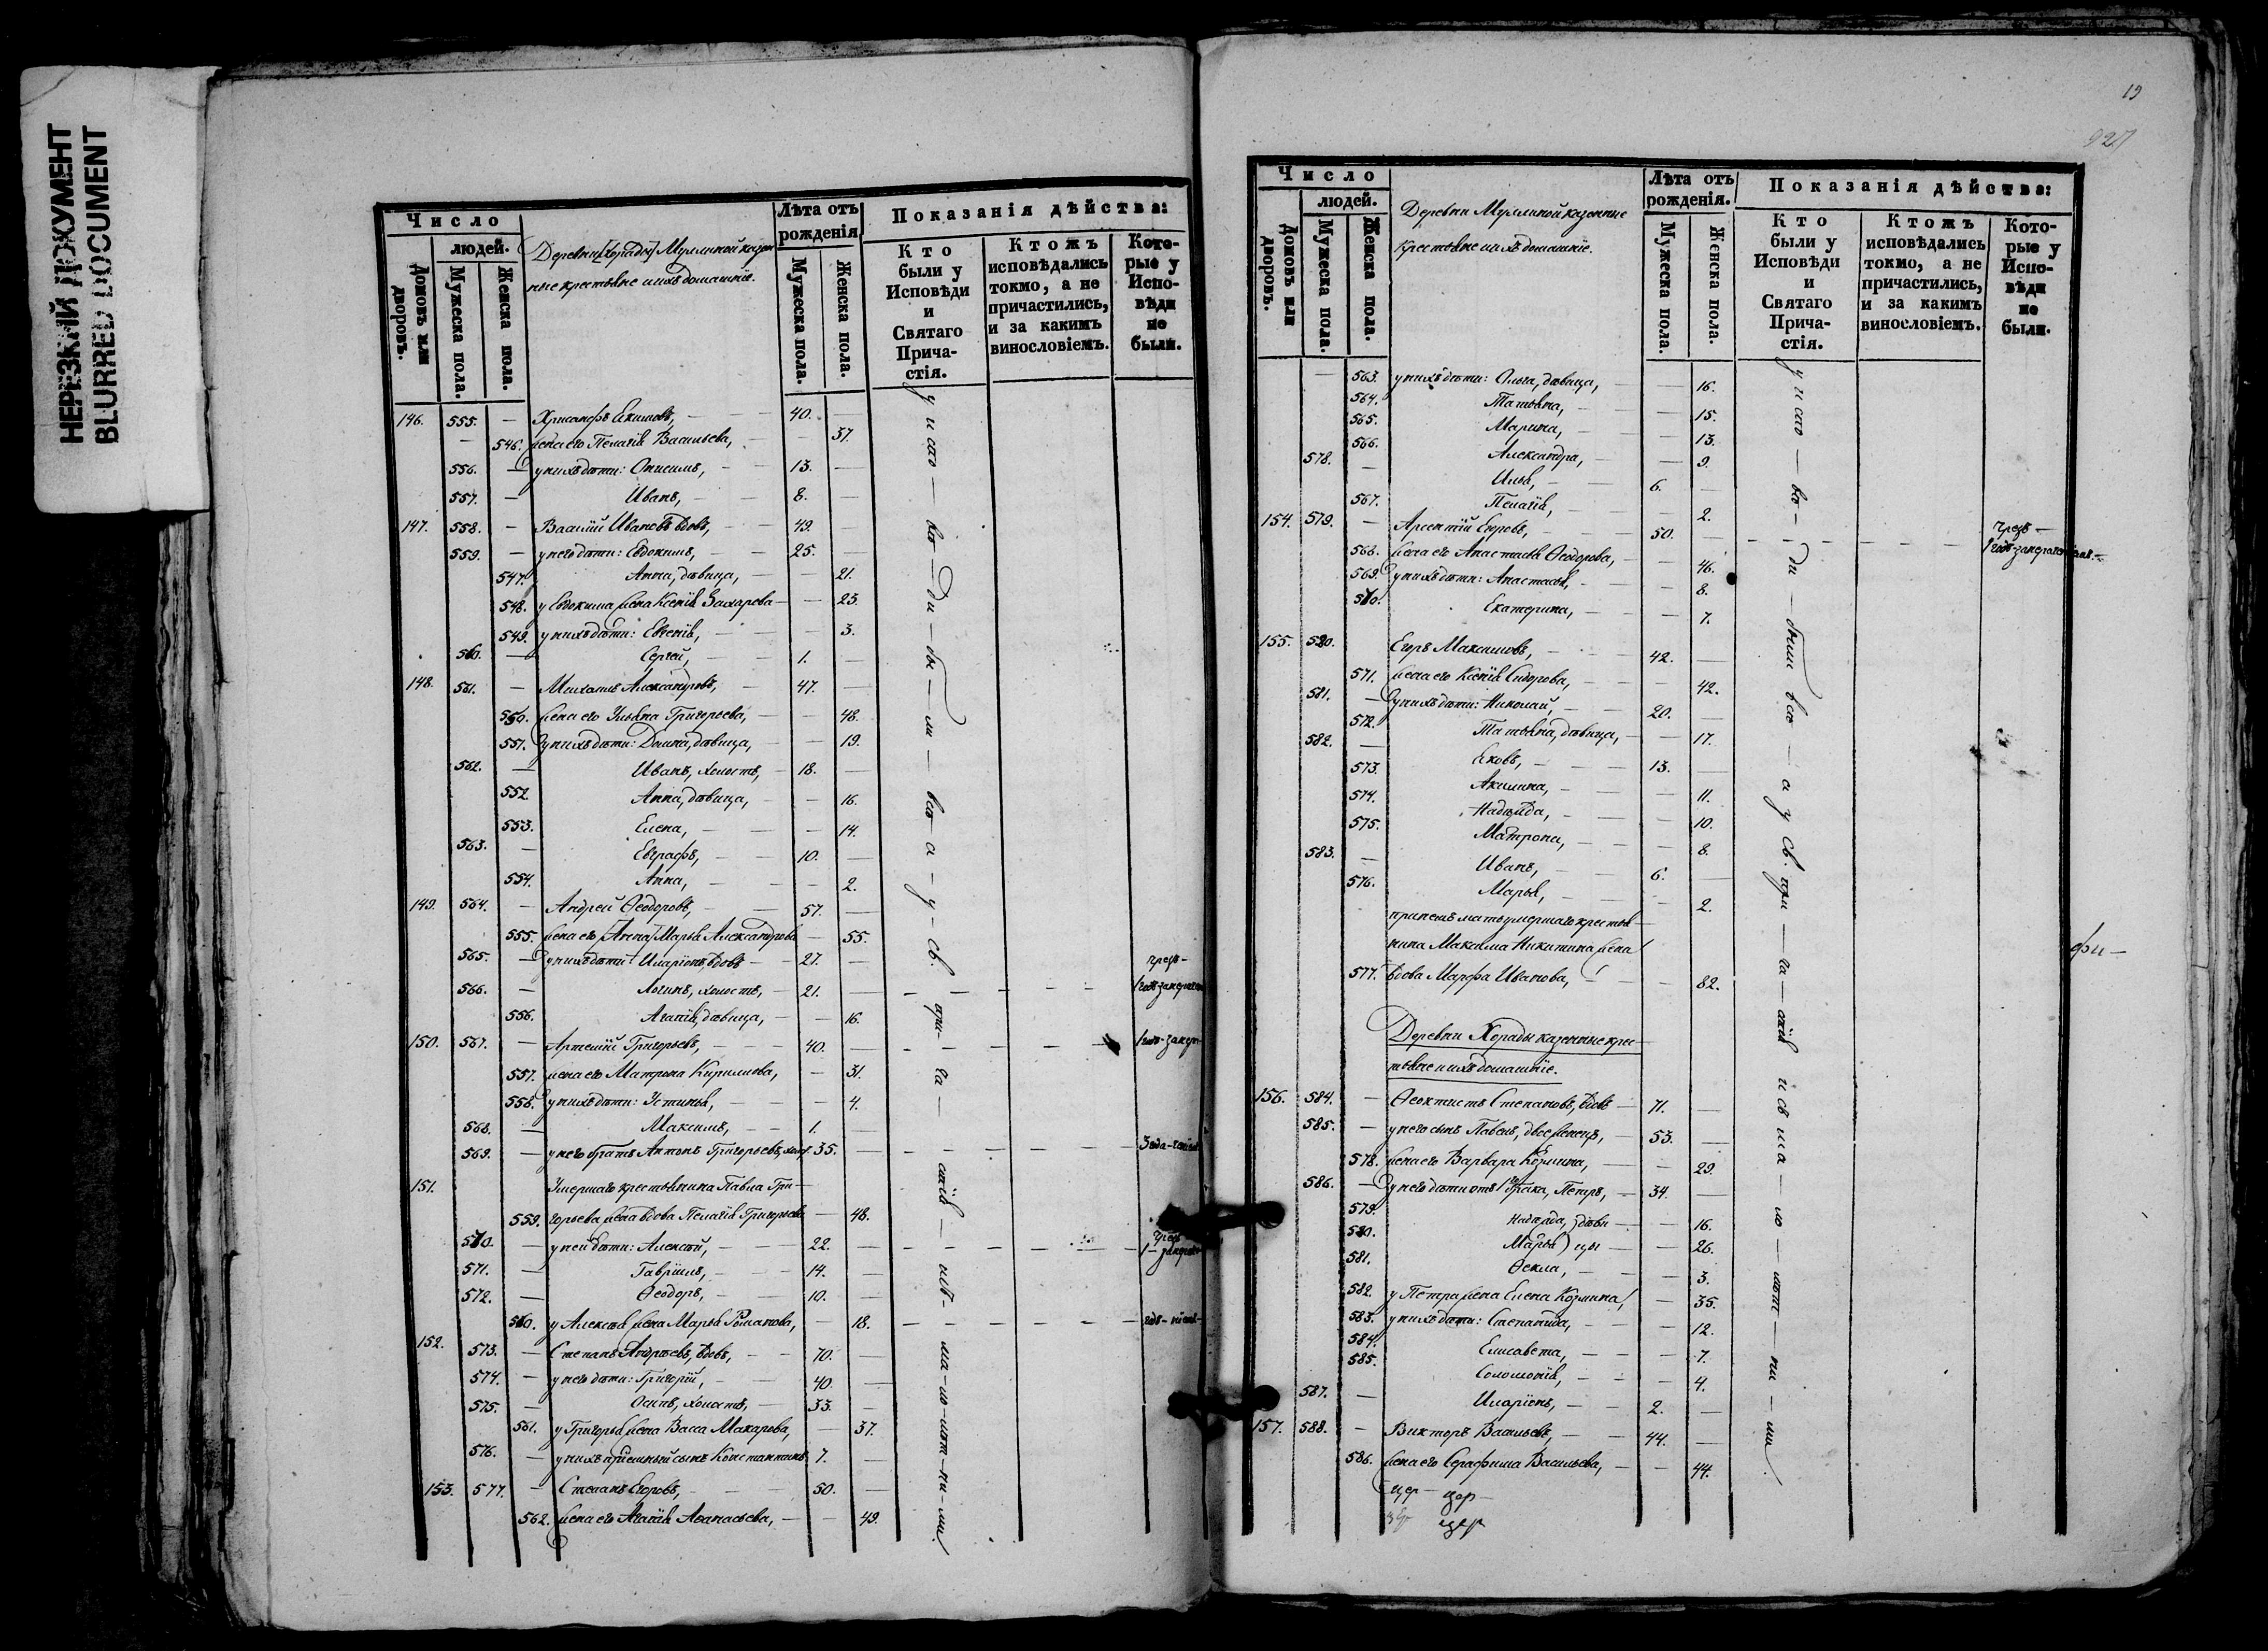 НЕРЕЗКИЙ ДОКУМЕНТ
BLURRED DOCUMENT
Число
людей.
Домовъ или дворовъ.
Мужеска пола.
Женска пола.
Деревни [Хорадок] Мерлиной казен
ные крестьяне и ихъ домашніе.
Лѣта отъ рожденія
Мужеска пола.
Женска пола.
Показанія дѣйства:
Кто были у Исповѣди и Святаго Причастія.
Ктожъ исповѣдались токмо, а не причастились, и за какимъ винословіемъ.
Которые у Исповѣди не были.
146. 555. — Хрисанфъ Екимовъ, — 40. —
— 546. жена его Пелагія Васильева, — 37.
556. — у нихъ дѣти: Онисимъ, — 13. —
557. — Иванъ, — 8. —
147. 558. — Василій Ивановъ вдовъ, — 49. —
559. — у него дѣти: Евдокимъ, — 25. —
547. Анна, дѣвица, — 21.
548. у Евдокима жена Ксенія Захарова — 23.
549. у нихъ дѣти: Евгенія, — 3.
560. — Сергей, — 1. —
148. 561. — Михаилъ Александровъ, — 47. —
550. жена его Ульяна Григорьева, — 48.
551. у нихъ дѣти: Домна, дѣвица, — 19.
562. — Иванъ, холостъ, — 18. —
552. Анна, дѣвица, — 16.
553. Елена, — 14.
563. — Евграфъ, — 10. —
554. Анна, — 2.
149. 564. — Андрей Ѳеодоровъ, — 57. —
555. жена его [Анна] Марья Александрова — 55.
565. — у нихъ дѣти: Иларіонъ, вдовъ — 27. —
566. — Логинъ, холостъ, — 21. —
556. Агапія, дѣвица, — 16.
150. 567. — Артемій Григорьевъ, — 40. —
557. жена его Матрона Кирилова, — 31.
558. у нихъ дѣти: Устинья, — 4.
568. — Максимъ, — 1. —
569. — у него братъ Антонъ Григорьевъ, 35. —
151. Умершаго крестьянина Павла Гри-
559. горьева жена вдова Пелагія Григорьева — 48.
570. — у ней дѣти: Алексѣй, — 22. —
571. — Гавріилъ, — 14. —
572. — Ѳеодоръ, — 10. —
560. у Алексѣя жена Марья Романова, — 18.
152. 573. — Степанъ Андреевъ, вдовъ, — 70. —
574. — у него дѣти: Григорій, — 40. —
575. — Осипъ, холостъ, — 33. —
561. у Григорья жена Васса Макарова, — 37.
576. — у нихъ пріемный сынъ Константинъ 7. —
153. 577. — Степанъ Егоровъ, — 50. —
562. жена его Агапія Аѳанасьева, — 49.
19
927
Число
людей.
Домовъ или дворовъ.
Мужеска пола.
Женска пола.
Деревни Мерлиной казенные
крестьяне и ихъ домашніе.
Лѣта отъ рожденія.
Мужеска пола.
Женска пола.
Показанія дѣйства:
Кто были у Исповѣди и Святаго Причастія.
Ктожъ исповѣдались токмо, а не причастились, и за какимъ винословіемъ.
Которые у Исповѣди не были.
— 563. у нихъ дѣти: Ольга, дѣвица, — 16.
564. Татьяна, — 15.
565. Марина, — 13.
566. Александра, — 9.
578. — Илья, — 6. —
567. Пелагія, — 2.
154. 579. — Арсентій Егоровъ, 50. —
568. жена его Анастасія Ѳеодорова, — 46.
569. у нихъ дѣти: Анастасья, — 8.
570. Екатерина, — 7.
155. 580. Егоръ Максимовъ, — 42. —
571. жена его Ксенія Сидорова, — 42.
581. — у нихъ дѣти: Николай, — 20. —
572. Татьяна, дѣвица, — 17.
582. — Яковъ, — 13. —
573. Акилина, — 11.
574. Надежда, — 10.
575. Матрона, — 8.
583. — Иванъ, — 6. —
576. Марья, — 2.
при немъ мать умершаго крестья-
нина Максима Никитина жена
577. вдова Марфа Иванова, — 82.
Деревни Хорады казенные крес-
тьяне и ихъ домашніе.
156. 584. — Ѳеоктистъ Степановъ, вдовъ — 71. —
585. — у него сынъ Павелъ, двоеженецъ, — 53. —
578. жена его Варвара Козмина, — 29.
586. — у него дѣти отъ 1го брака, Петръ, — 34. —
579. Надежда, } дѣви — 16.
580. Марья } цы — 26.
581. Ѳекла, — 3.
582. у Петра жена Елена Козмина, — 35.
583. у нихъ дѣти: Степанида, — 12.
584. Елисавета, — 7.
585. Соломонія, — 4.
587. — Иларіонъ, — 2. —
157. 588. — Викторъ Васильевъ, — 44. —
586. жена его Серафима Васильева, — 44.